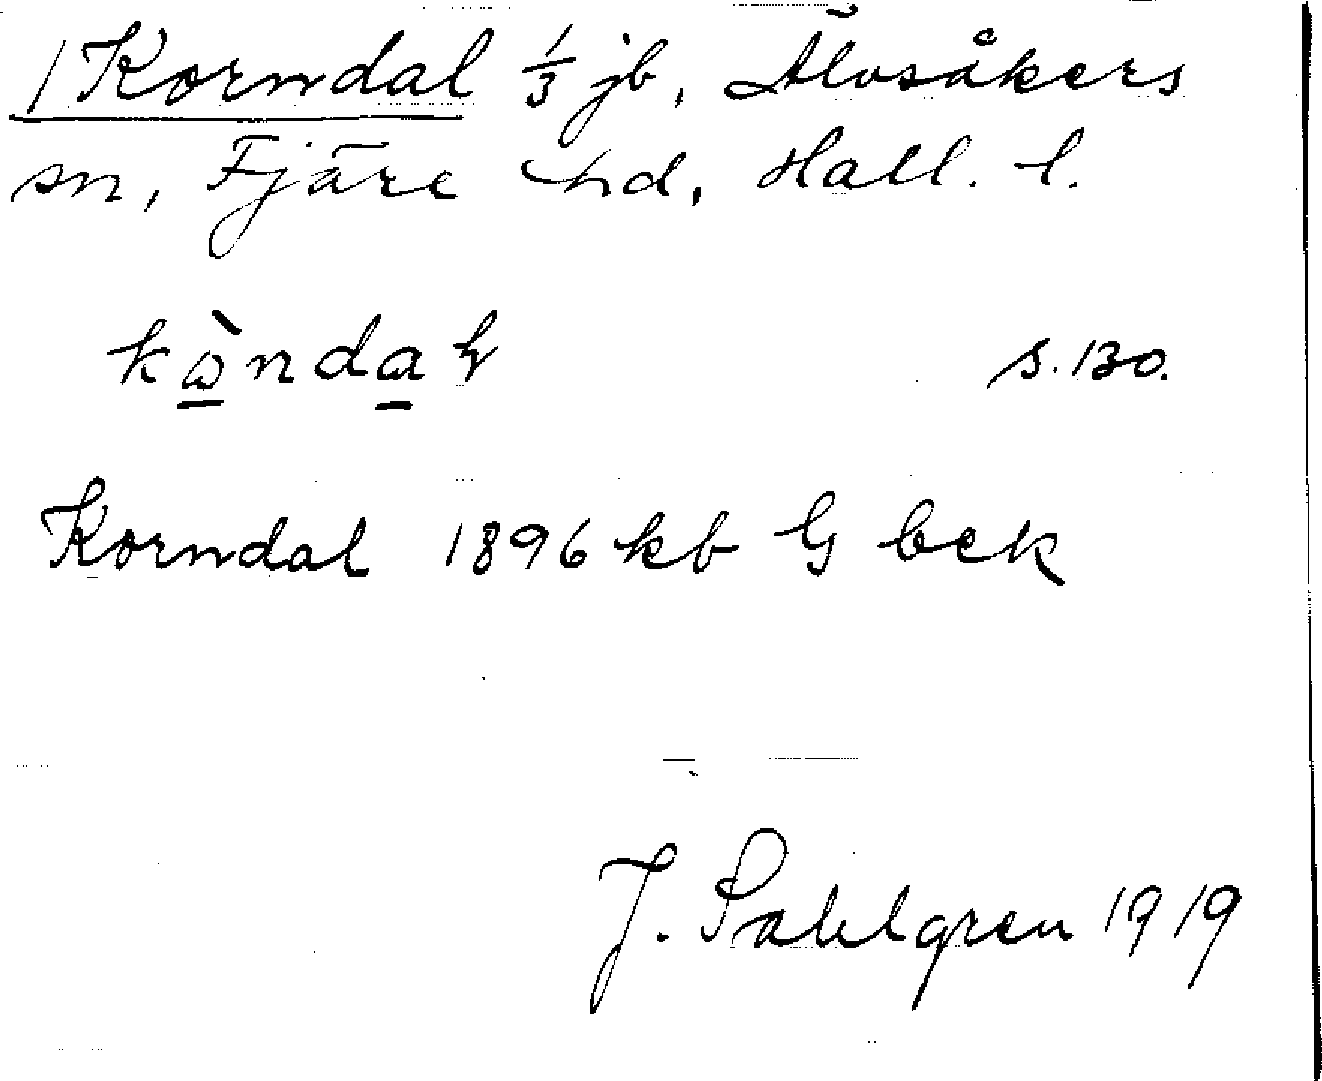 1 Korndal 1/3 jb, Älvsåkers
sn, Fjäre hd, Hall. l.
s. 130.
Korndal 1896 kb G bek
J. Sahlgren 1919